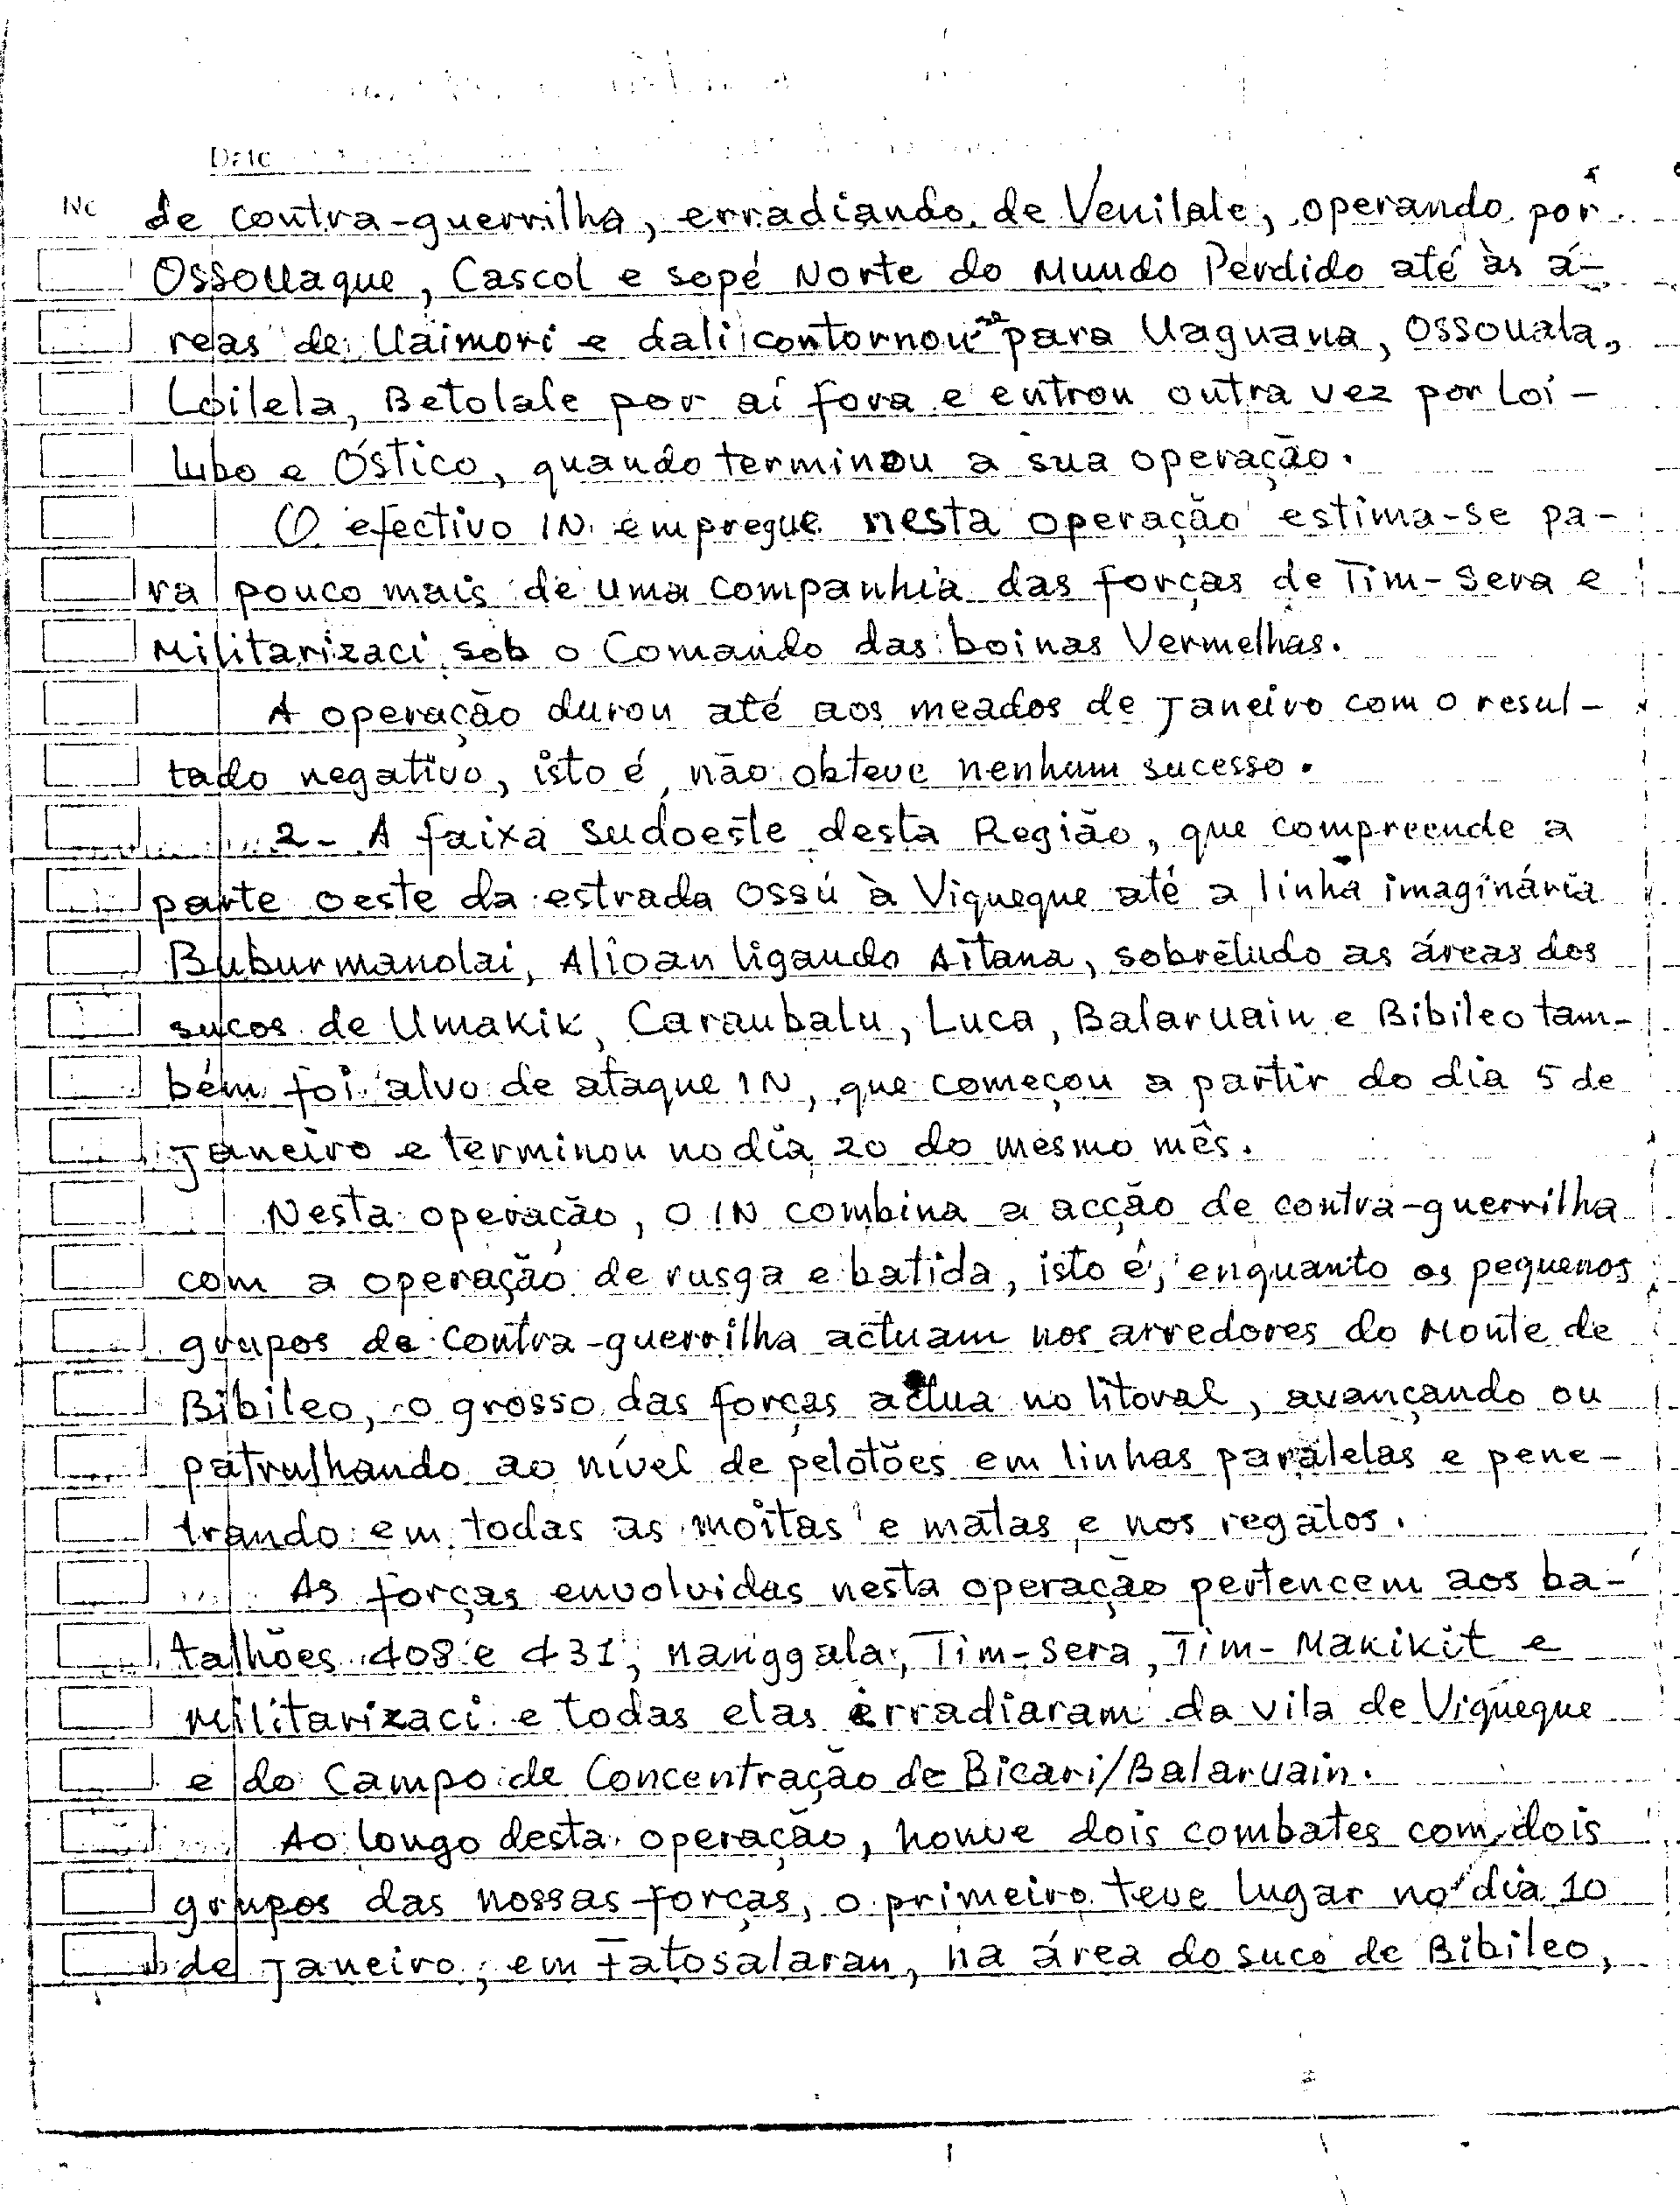 Date
No
de contra-guerrilha, erradiando de Venilale, operando por
Ossouaque, Cascol e sopé Norte do Mundo Perdido até às á-
reas de Uaimori e dali contornou se para Uaguana, Ossouala,
Loilela, Betolale por aí fora e entrou outra vez por Loi-
lubo e Óstico, quando terminou a sua operação.
O efectivo IN empregue nesta operação estima-se pa-
ra pouco mais de uma companhia das forças de Tim-Sera e
Militarizaci sob o Comando das boinas Vermelhas.
A operação durou até aos meados de Janeiro com o resul-
tado negativo, isto é, não obteve nenhum sucesso.
2- A faixa sudoeste desta Região, que compreende a
parte oeste da estrada Ossú à Viqueque até a linha imaginária
Buburmanolai, Alioan ligando Aitana, sobretudo as áreas dos
sucos de Umakik, Caraubalu, Luca, Balaruain e Bibileo tam-
bém foi alvo de ataque IN, que começou a partir do dia 5 de
Janeiro e terminou no dia 20 do mesmo mês.
Nesta operação, o IN combina a acção de contra-guerrilha
com a operação de rusga e batida, isto é, enquanto os pequenos
grupos de contra-guerrilha actuam nos arredores do Monte de
Bibileo, o grosso das forças actua no litoral, avançando ou
patrulhando ao nível de pelotões em linhas paralelas e pene-
trando em todas as moitas e matas e nos regatos.
As forças envolvidas nesta operação pertencem aos ba-
talhões 408 e 431, Nanggala, Tim-Sera, Tim-Makikit e
militarizaci e todas elas erradiaram da vila de Viqueque
e do Campo de Concentração de Bicari/Balaruain.
Ao longo desta operação, houve dois combates com dois
grupos das nossas forças, o primeiro teve lugar no dia 10
de Janeiro, em Fatosalaran, na área do suco de Bibileo,